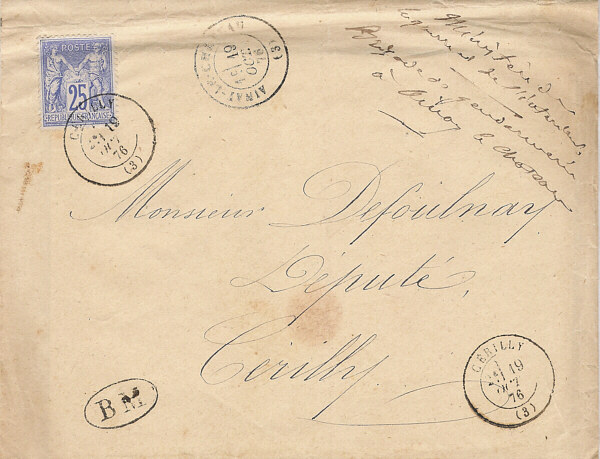 POSTE
25
RÉPUBLIQUE FRANÇAISE
CERILLY
19
OCT
76
(3)
AINAY-LE-CHATEAU
19
OCT
76
(3)
Ministère
de
Gendarmerie
à
le Château
Monsieur Defoulnay
Député,
Cerilly
BM
CERILLY
19
OCT
76
(3)